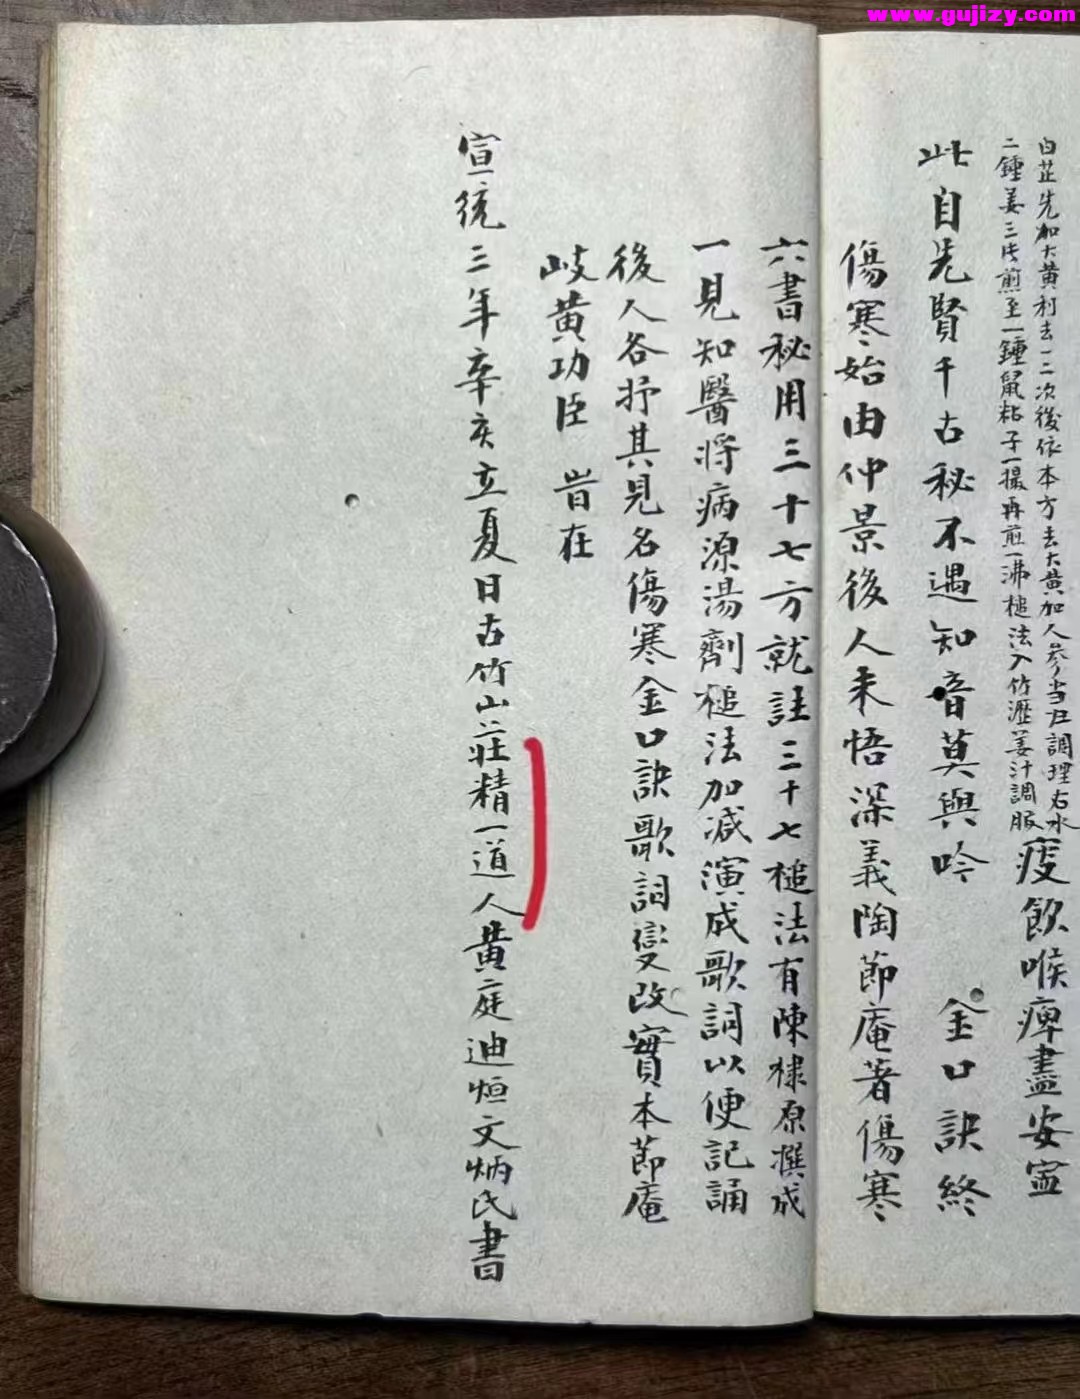 www.gujizy.com
白芷先加大黄利去一二次後依本方去大黄加人参当归調理右水
二鍾姜三片煎至一鍾鼠粘子一撮再煎一沸槌法入竹瀝姜汁調服
痰飲喉痺盡安寍
此自先賢千古秘不遇知音莫與吟 金口訣終
傷寒始由仲景後人未悟深義陶節庵著傷寒
六書秘用三十七方就註三十七槌法有陳棣原撰成
一見知醫將病源湯劑槌法加減演成歌詞以便記誦
後人各抒其見名傷寒金口訣歌詞變改實本節庵
岐黄功臣 旹在
宣統三年辛亥立夏日古竹山莊精一道人黄庭迪恒文炳氏書